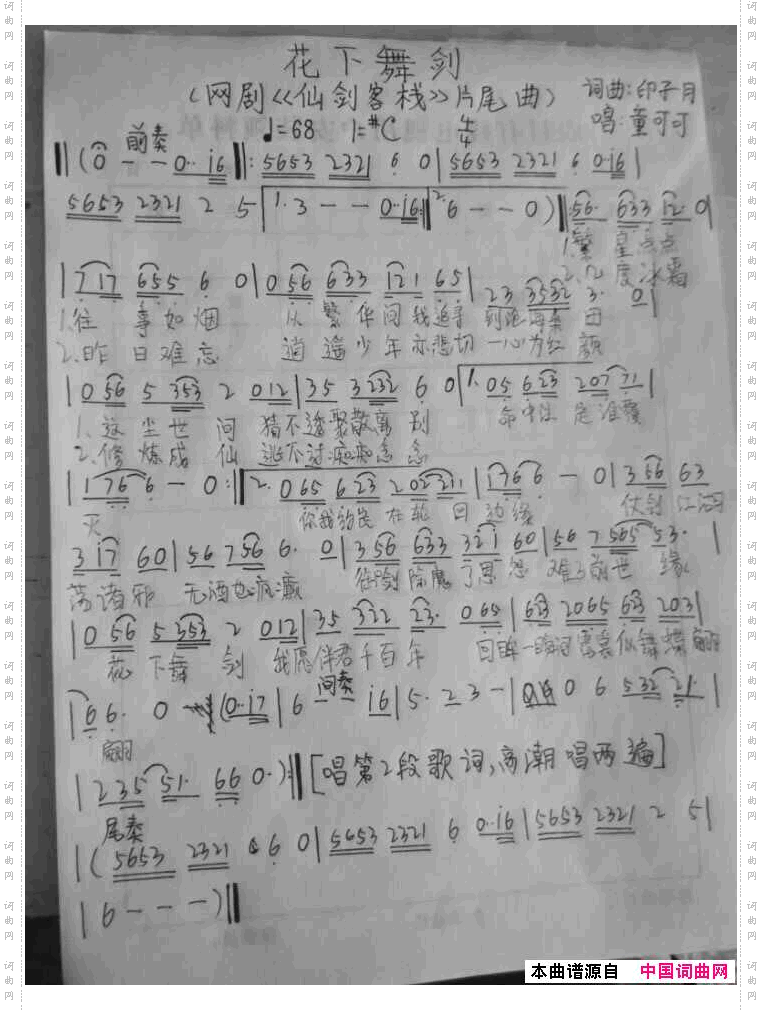 花下舞剑
(网剧《仙剑客栈》片尾曲) 词曲:印子月
♩=68 1=#C 4/4 唱:童可可
前奏
‖(0 - - 0·· i6‖: 5653 2321 6 0|5653 2321 6 0·i6|
5653 2321 2 5|1. 3 - - 0··i6:‖2. 6 - - 0)‖: 56· 633 12· 0|
1.繁 星点点
2.几 度冰霜
|717 655 6 0|056 633 121 65|23 3532 3· 0|
1.往 事如烟 从繁华间我追寻 到沧海桑田
2.昨日难忘 逍遥少年亦悲切 一心为红颜
|056 5 353 2 012|35 3232 6 0|1. 05 623 20771|
1.这尘世间 猜不透聚散离别 命中注定谁覆
2.修炼成仙 逃不过痴痴念念
|176 6 - 0:‖2. 065 623 202211|1766 - 0|356 63
灭 你我约定在轮回边缘 仗剑江湖
317 60|56 756 6· 0|356 633 321 60|56 7565 53·|
荡诸邪 无酒也疯癫 往 除魔了恩怨 难了前世缘
|056 5353 2 012|35 322 23· 065|623 2065 623 203|
花下舞剑 我愿伴君千百年 回眸一瞬间 似舞蝶翩
|66· 0 (0·i7|6 间奏 i6|5· 23 -| 0 6 532 21·|
翩
|235 51· 66 0·):‖[唱第2段歌词,高潮唱两遍]
尾奏
|(5653 2321 6 0|5653 2321 6 0··i6|5653 2321 2 5|
|6 - - -)‖
本曲谱源自 中国词曲网
词曲网